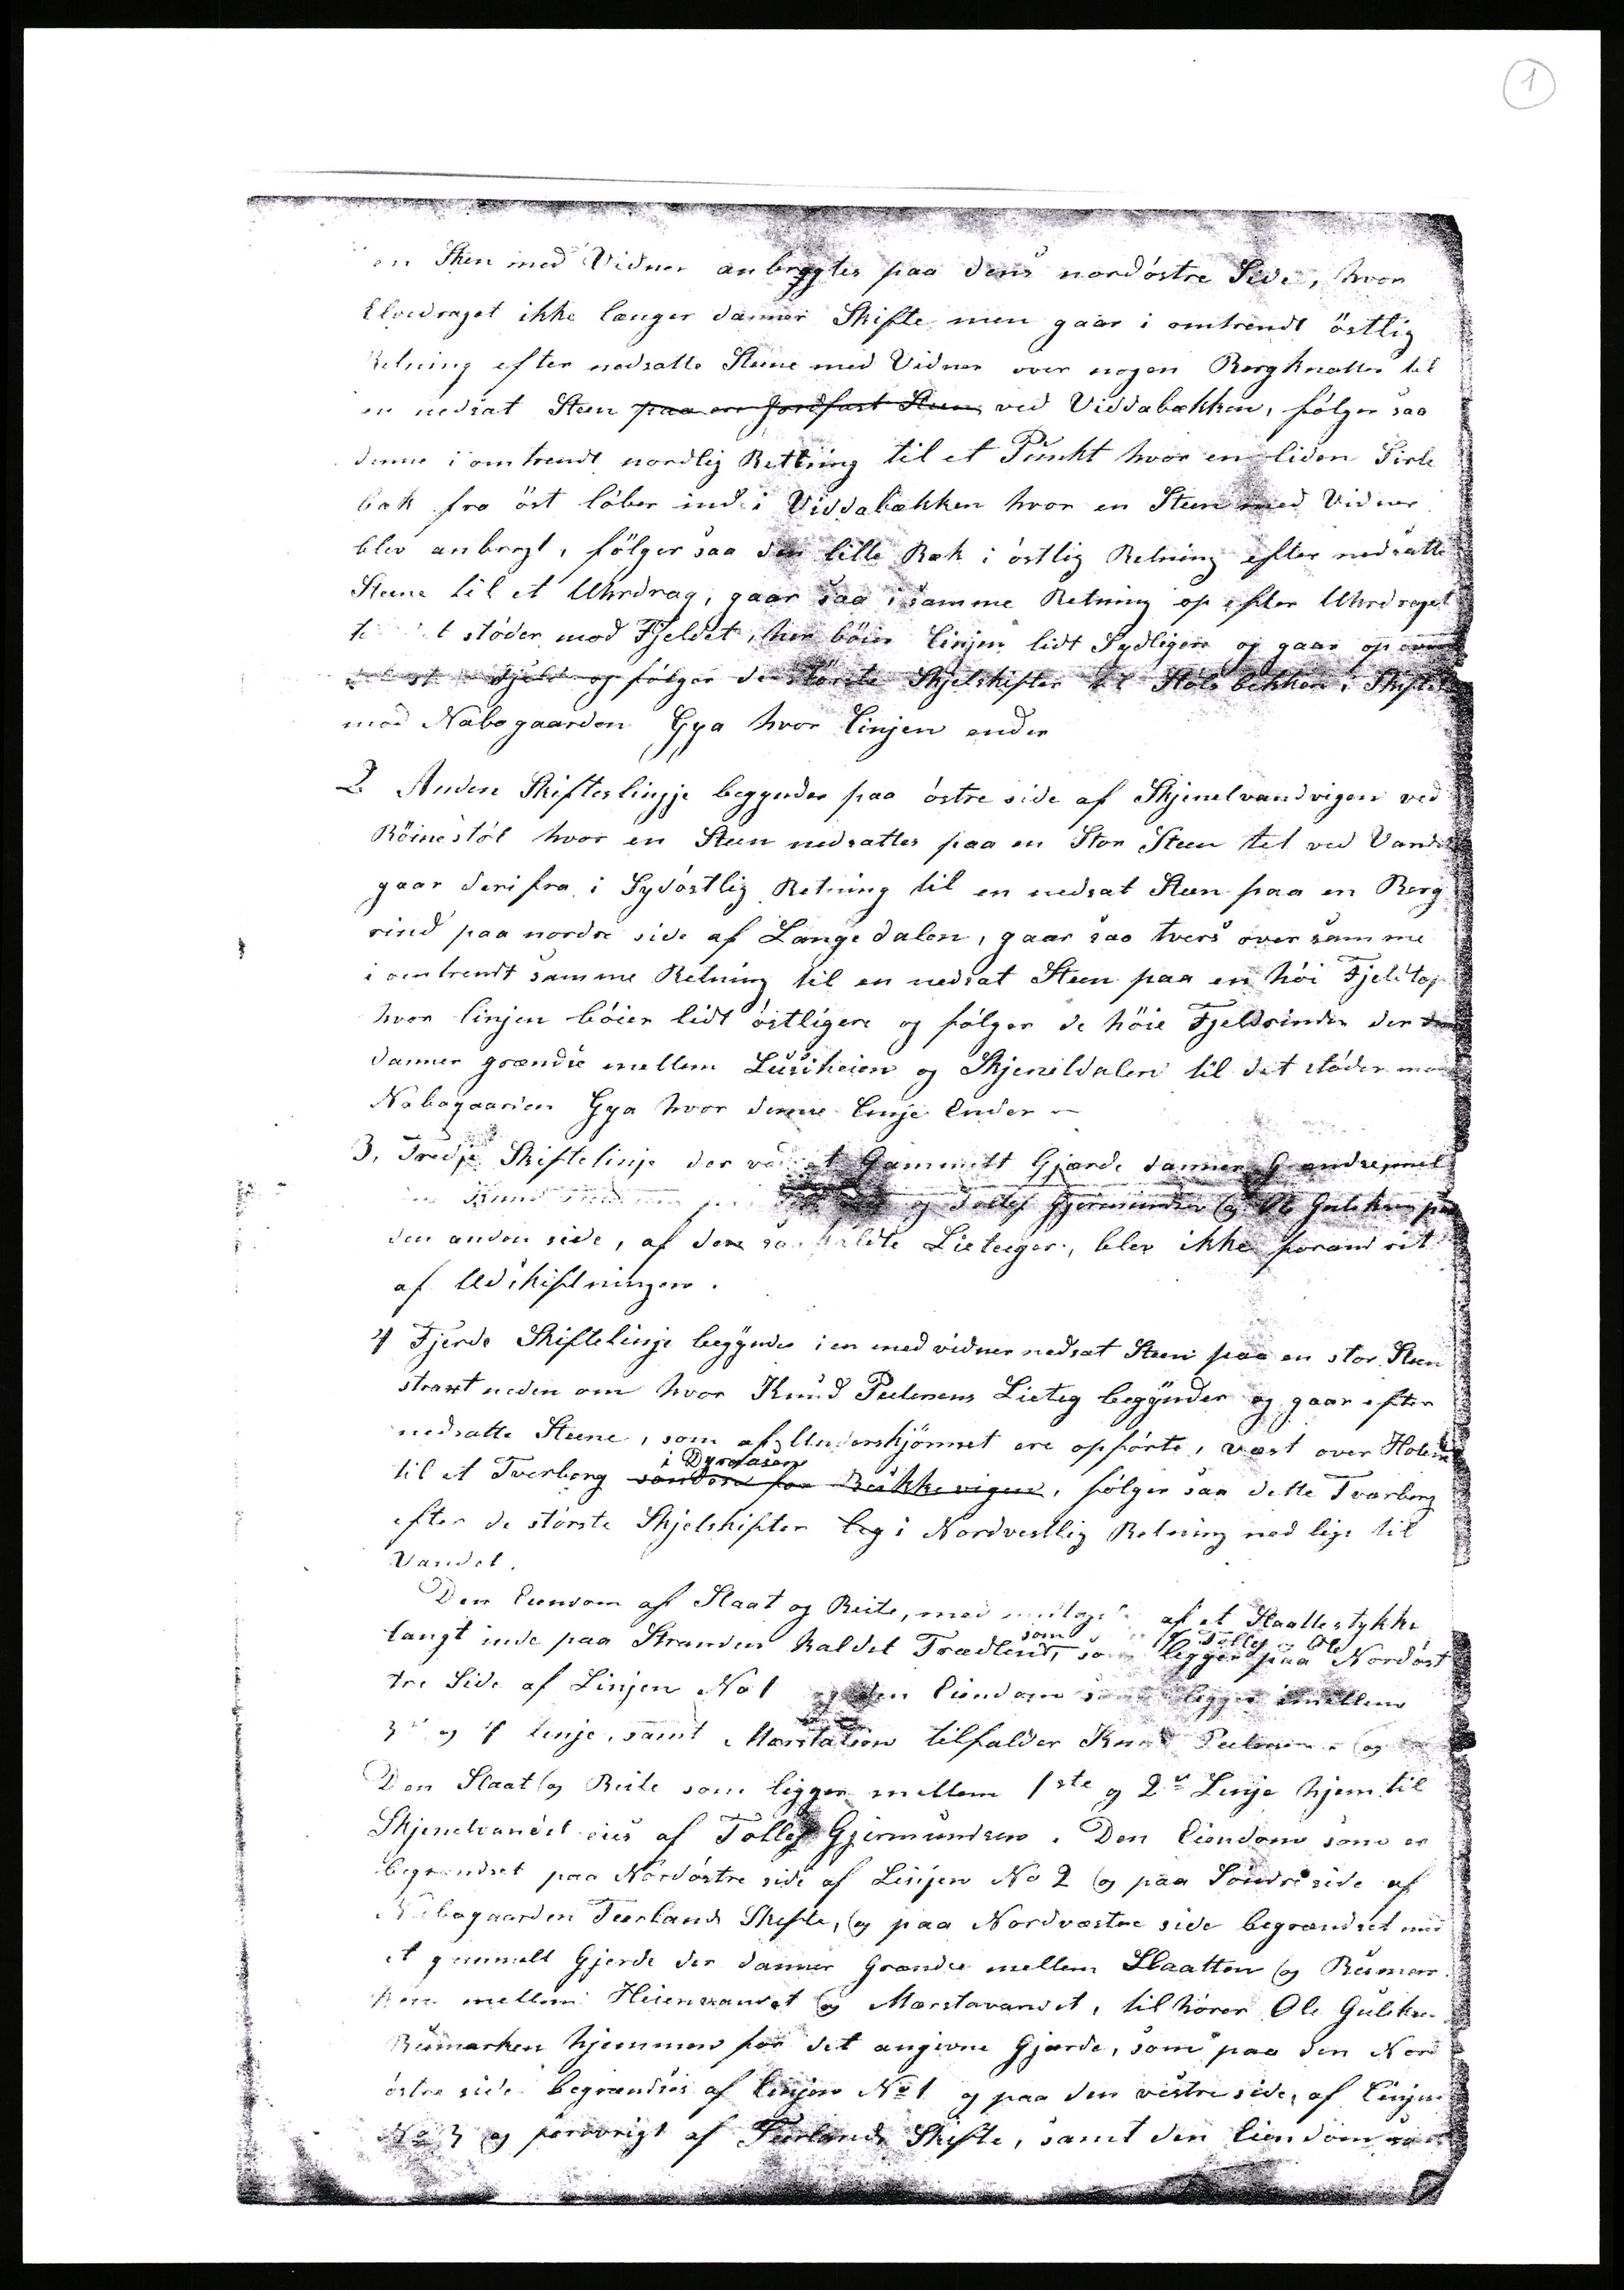 1
en Sten med Vidner anbragtes paa dens nordöstre Side, hvor
Elvedraget ikke længer danner Skifte men gaar i omtrendt östlig
Retning efter nedsatte Stene med Vidner over nogen Bergknatter til
en nedsat Steen paa en Jordfast Steen ved Viddabækken, fölger saa
denne i omtrendt nordlig Rettning til et Punkt hvor en liden Sirle
bæk fra öst löber ind i Viddabækken hvor en Steen med Vidner
blev anbragt, fölger saa den lille Bæk i östlig Retning efter nedsatte
Steene til et Uhrdrag, gaar saa i samme Retning op efter Uhrdraget
stöder mod Fjeldet, her böier Linjen lidt Sydligere og gaar op over
Fjeld og fölger de störste Skjelskifter til Stöls bekken i Skiftet
mod Nabogaarden Gya hvor Linjen ender
2 Anden Skifteslinje begynder paa östre side af Skjenelvandvigen ved
Röinestöl hvor en Steen nedsattes paa en Stor Steen tet ved Vandet
gaar derifra i Sydöstlig Retning til en nedsat Steen paa en Berg
rind paa nordre side af Langedalen, gaar saa tvers over samme
i omtrendt samme Retning til en nedsat Steen paa en höi Fjeldtop
hvor linjen böier lidt östligere og fölger de höie Fjeldrinder der
danner grændse mellem Lusiheien og Skjeneldalen til det stöder mod
Nabogaarden Gya hvor denne Linje Ender
3. Tredje Skiftelinje der ved et Gammelt Gjærde danner Grændse mel
Knud og Tollef Gjermundsen og Ole Guleksen paa
den anden side, af dere saakaldte Lieteiger, blev ikke forandret
af Udskiftningen.
4 Fjerde Skiftelinje begynder i en med vidner nedsat Steen paa en stor Steen
straxt neden om hvor Knud Peedersens Lieteg begynder og gaar efter
nedsatte Steene, som af Underskjönnet ere opförte, væst over Holen
i Dyrdaasen
til et Tverberg sönden for Bukkevigen, fölger saa dette Tværberg
efter de störste Skjelskifter leg i Nordvestlig Retning ned lige til
Vandet.
Den Eiendom af Slaat og Beite, med undtagelse af et Slaattestykke
som Tollef Ole
langt inde paa Stranden kaldet Trædlend, som ligger paa Nordöst
tre Side af Linjen No 1 og den Eiendom som ligger imellem
3de og 4 linje, samt Marstatoen tilfalder Knud og
Den Slaat og Beite som ligger mellem 1ste og 2de Linje hjem til
Skjenelvandet eies af Tollef Gjermundsen. Den Eiendom som er
begrændset paa Nordöstre side af Linjen No 2 og paa Söndre side af
Nabogaarden Teerlands Skifte, og paa Nordvæstre side begrændset med
et gammelt Gjerde der danner Grændse mellem Slaatten og Bumar
ken mellem Heienvandet og Marstavandet, tilhörer Ole Guleksen
Bumarken hjemmen for det angivne Gjærde, som paa den Nord
östre side begrændses af linjen No 1 og paa den vestre side, af Linjen
No 3 og forövrigt af Teerlands Skifte, samt den Eiendom som